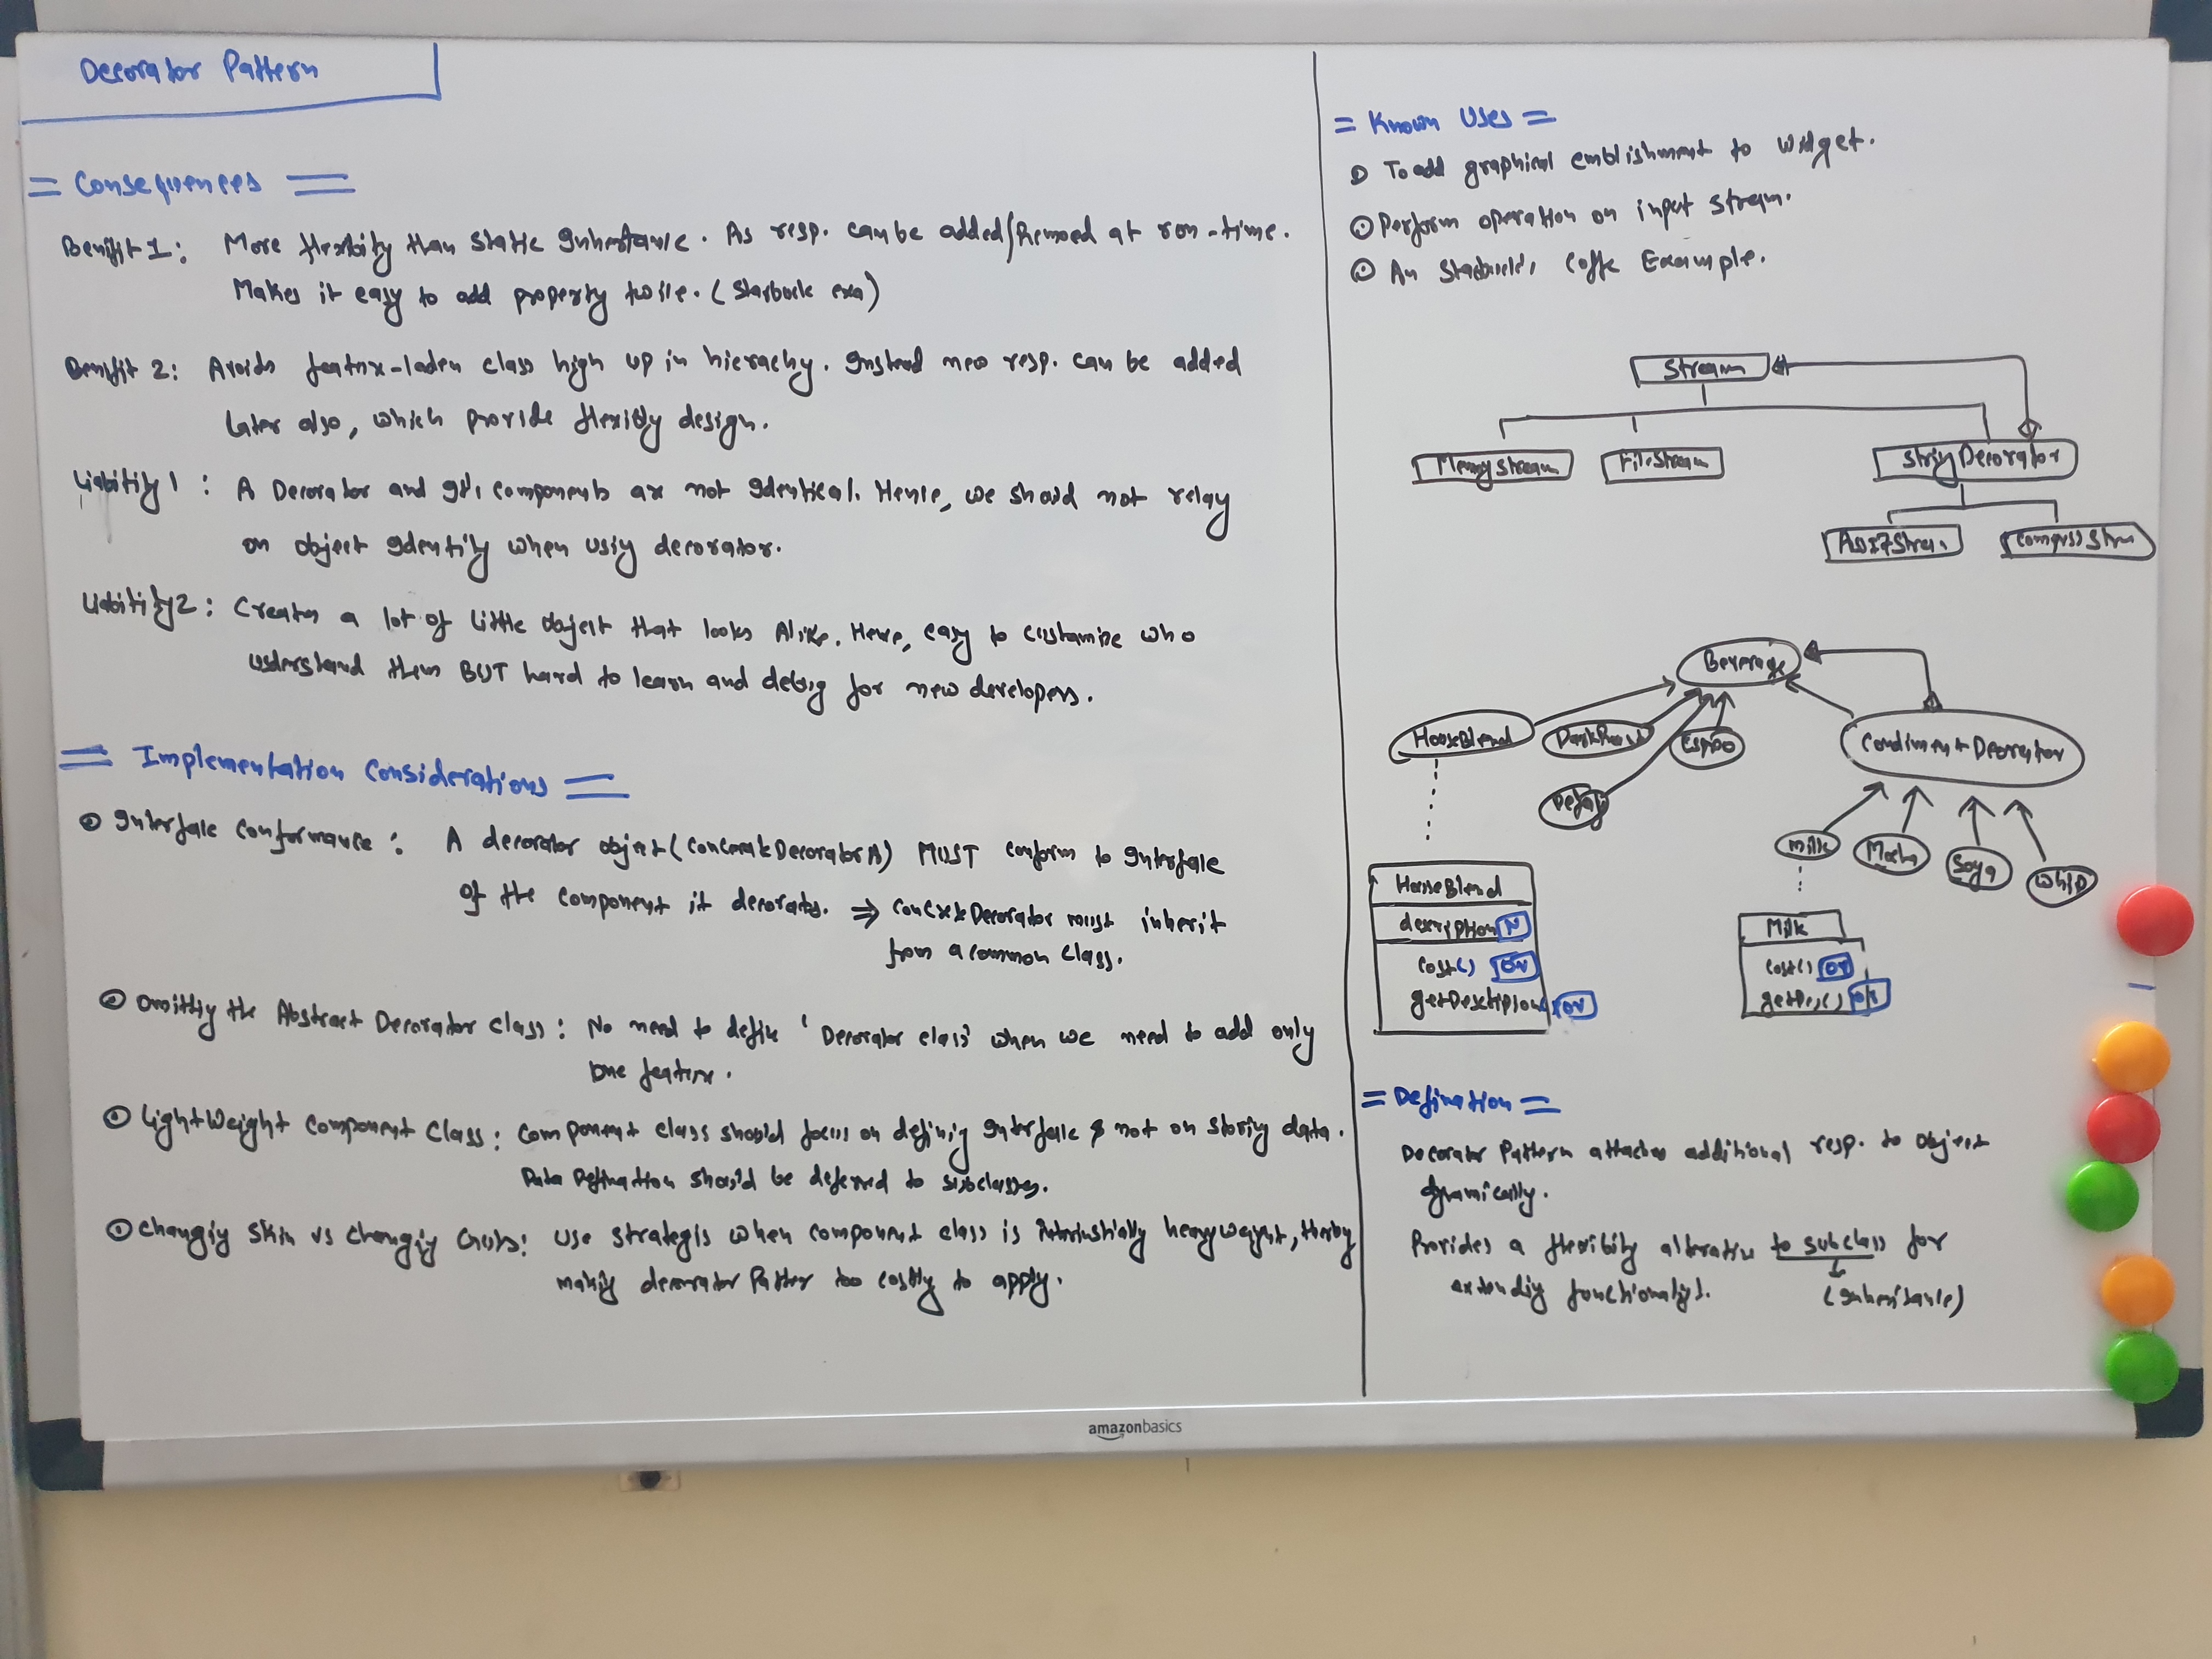 Decorator Pattern
= Consequences =
Benifit 1: More flexibity than Static Inheritance. As resp. can be added/Remoed at ron-time.
Makes it easy to add property twice. (Starbuck exa)
Benifit 2: Avoids feature-laden class high up in hierachy. Instead new resp. can be added
later also, which provide flexibly design.
Liability 1: A Decorator and It's components are not Identical. Hence, we should not relay
on object Identity when using decorator.
Liability 2: Creates a lot of little object that looks Alike. Hence, easy to customize who
understand them BUT hard to learn and debug for new developers.
= Implementation Considerations =
Interface Conformance: A decorator object (ConcreteDecoratorA) MUST conform to Interface
of the component it decorates. ⇒ Decorator must inherit
from a common class.
Omitting the Abstract Decorator class: No need to define 'Decorator class' when we need to add only
one feature.
LightWeight Component Class: Component class should focus on defining Interface & not on storing data.
Data Defination should be deferred to subclasses.
Changing Skin vs Changing Guts: Use Strategis when component class is heavyweight, thereby
making decorator Patter too costly to apply.
= Known Uses =
To add graphical emblishment to widget.
Perform operation on input stream.
An Starbuck's Coffe Example.
Stream
MemoryStream FileStream Decorator
Beverage
HouseBlend DarkRoast CondimentDecorator
Milk Mocha Soya Whip
HouseBlend
description N
cost() ov
ov
Milk
cost() ov
= Defination =
Decorator Pattern attaches additional resp. to object
dynamically.
Provides a flexibity alterative to subclass for
extending
(Inheritance)
amazonbasics